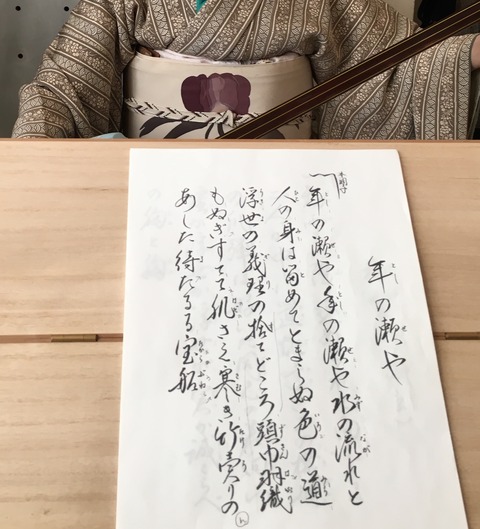 年の瀬や
本調子
〽年の瀬や年の瀬や水の流れと
人の身は留めてとまらぬ色の道
浮世の義理の捨てどころ頭巾羽織
もぬぎすてて肌さえ寒き竹売りの
あした待たるる宝船